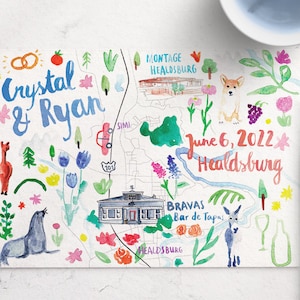 Crystal
& Ryan
MONTAGE
HEALDSBURG
SIMI
101
June 6, 2022
Healdsburg
BRAVAS
Bar de Tapas
HEALDSBURG